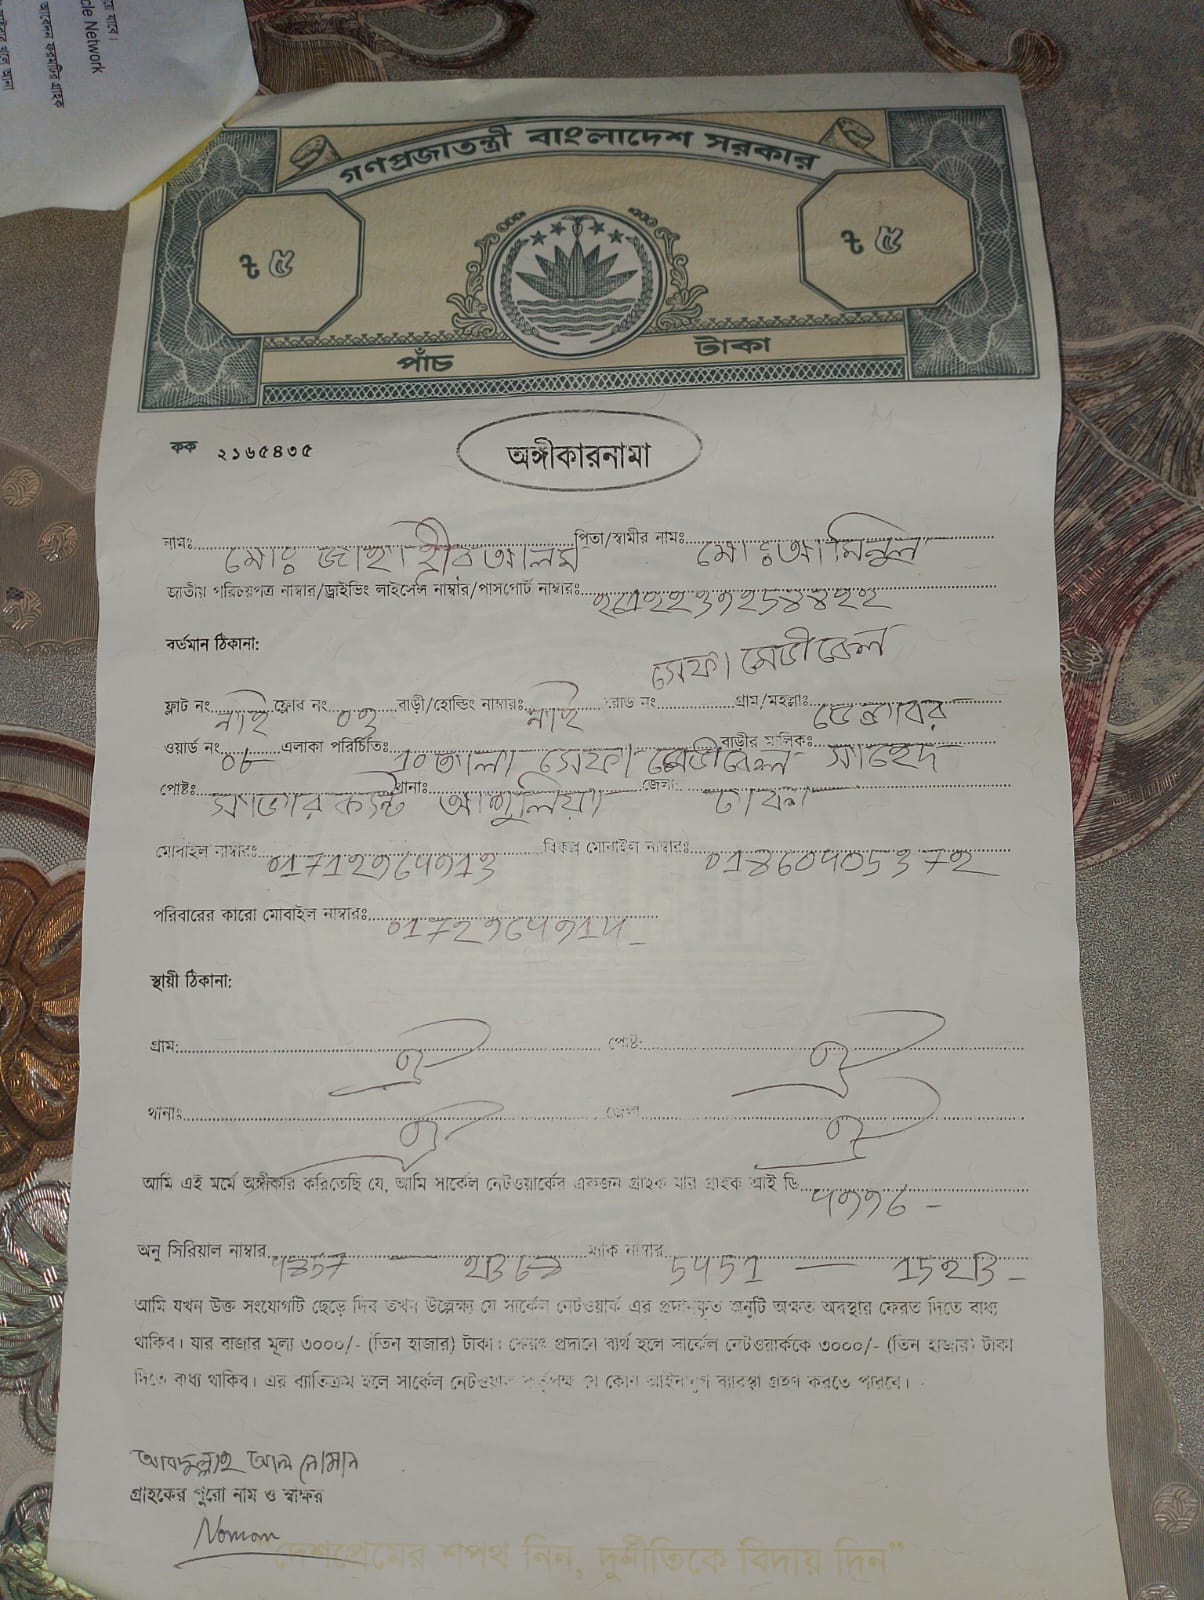 যে যাবে।
cle Network
আবেদন ফরমটির গ্রাহক
গণপ্রজাতন্ত্রী বাংলাদেশ সরকার
৳ ৫
৳ ৫
পাঁচ টাকা
কক ২১৬৫৪৩৫
অঙ্গীকারনামা
নামঃ মোঃ জাহাঙ্গীর আলম পিতা/স্বামীর নামঃ মোঃ আমিনুল
জাতীয় পরিচয়পত্র নাম্বার/ড্রাইভিং লাইসেন্স নাম্বার/পাসপোর্ট নাম্বারঃ
বর্তমান ঠিকানা:
সেফা মেডিকেল
ফ্লাট নং নাই ফ্লোর নং ০২ বাড়ী/হোল্ডিং নাম্বারঃ নাই রোড নং গ্রাম/মহল্লাঃ ডেন্ডাবর
ওয়ার্ড নং ০৮ এলাকা পরিচিতিঃ ১০তালা সেফা মেডিকেল বাড়ীর মালিকঃ সাহেদ
পোষ্টঃ সাভার ক্যন্ট থানাঃ আশুলিয়া জেলা: ঢাকা
মোবাইল নাম্বারঃ বিকল্প মোবাইল নাম্বারঃ
পরিবারের কারো মোবাইল নাম্বারঃ
স্থায়ী ঠিকানা:
গ্রাম: ঐ পোষ্ট: ঐ
থানাঃ ঐ জেলা ঐ
আমি এই মর্মে অঙ্গীকার করিতেছি যে, আমি সার্কেল নেটওয়ার্কের একজন গ্রাহক যার গ্রাহক আই ডি
অনু সিরিয়াল নাম্বার ম্যাক নাম্বার
আমি যখন উক্ত সংযোগটি ছেড়ে দিব তখন উল্লেক্ষ্য যে সার্কেল নেটওয়ার্ক এর প্রদানকৃত অনুটি অক্ষত অবস্থার ফেরত দিতে বাধ্য
থাকিব। যার বাজার মূল্য ৩০০০/- (তিন হাজার) টাকা। ফেরৎ প্রদানে ব্যর্থ হলে সার্কেল নেটওয়ার্ককে ৩০০০/- (তিন হাজার) টাকা
দিতে বাধ্য থাকিব। এর ব্যাতিক্রম হলে সার্কেল নেটওয়ার্ক কর্তৃপক্ষ যে কোন আইনানুগ ব্যাবস্থা গ্রহণ করতে পারবে।
আবদুল্লাহ আল নোমান
গ্রাহকের পুরো নাম ও স্বাক্ষর
Noman
দেশপ্রেমের শপথ নিন, দুর্নীতিকে বিদায় দিন”